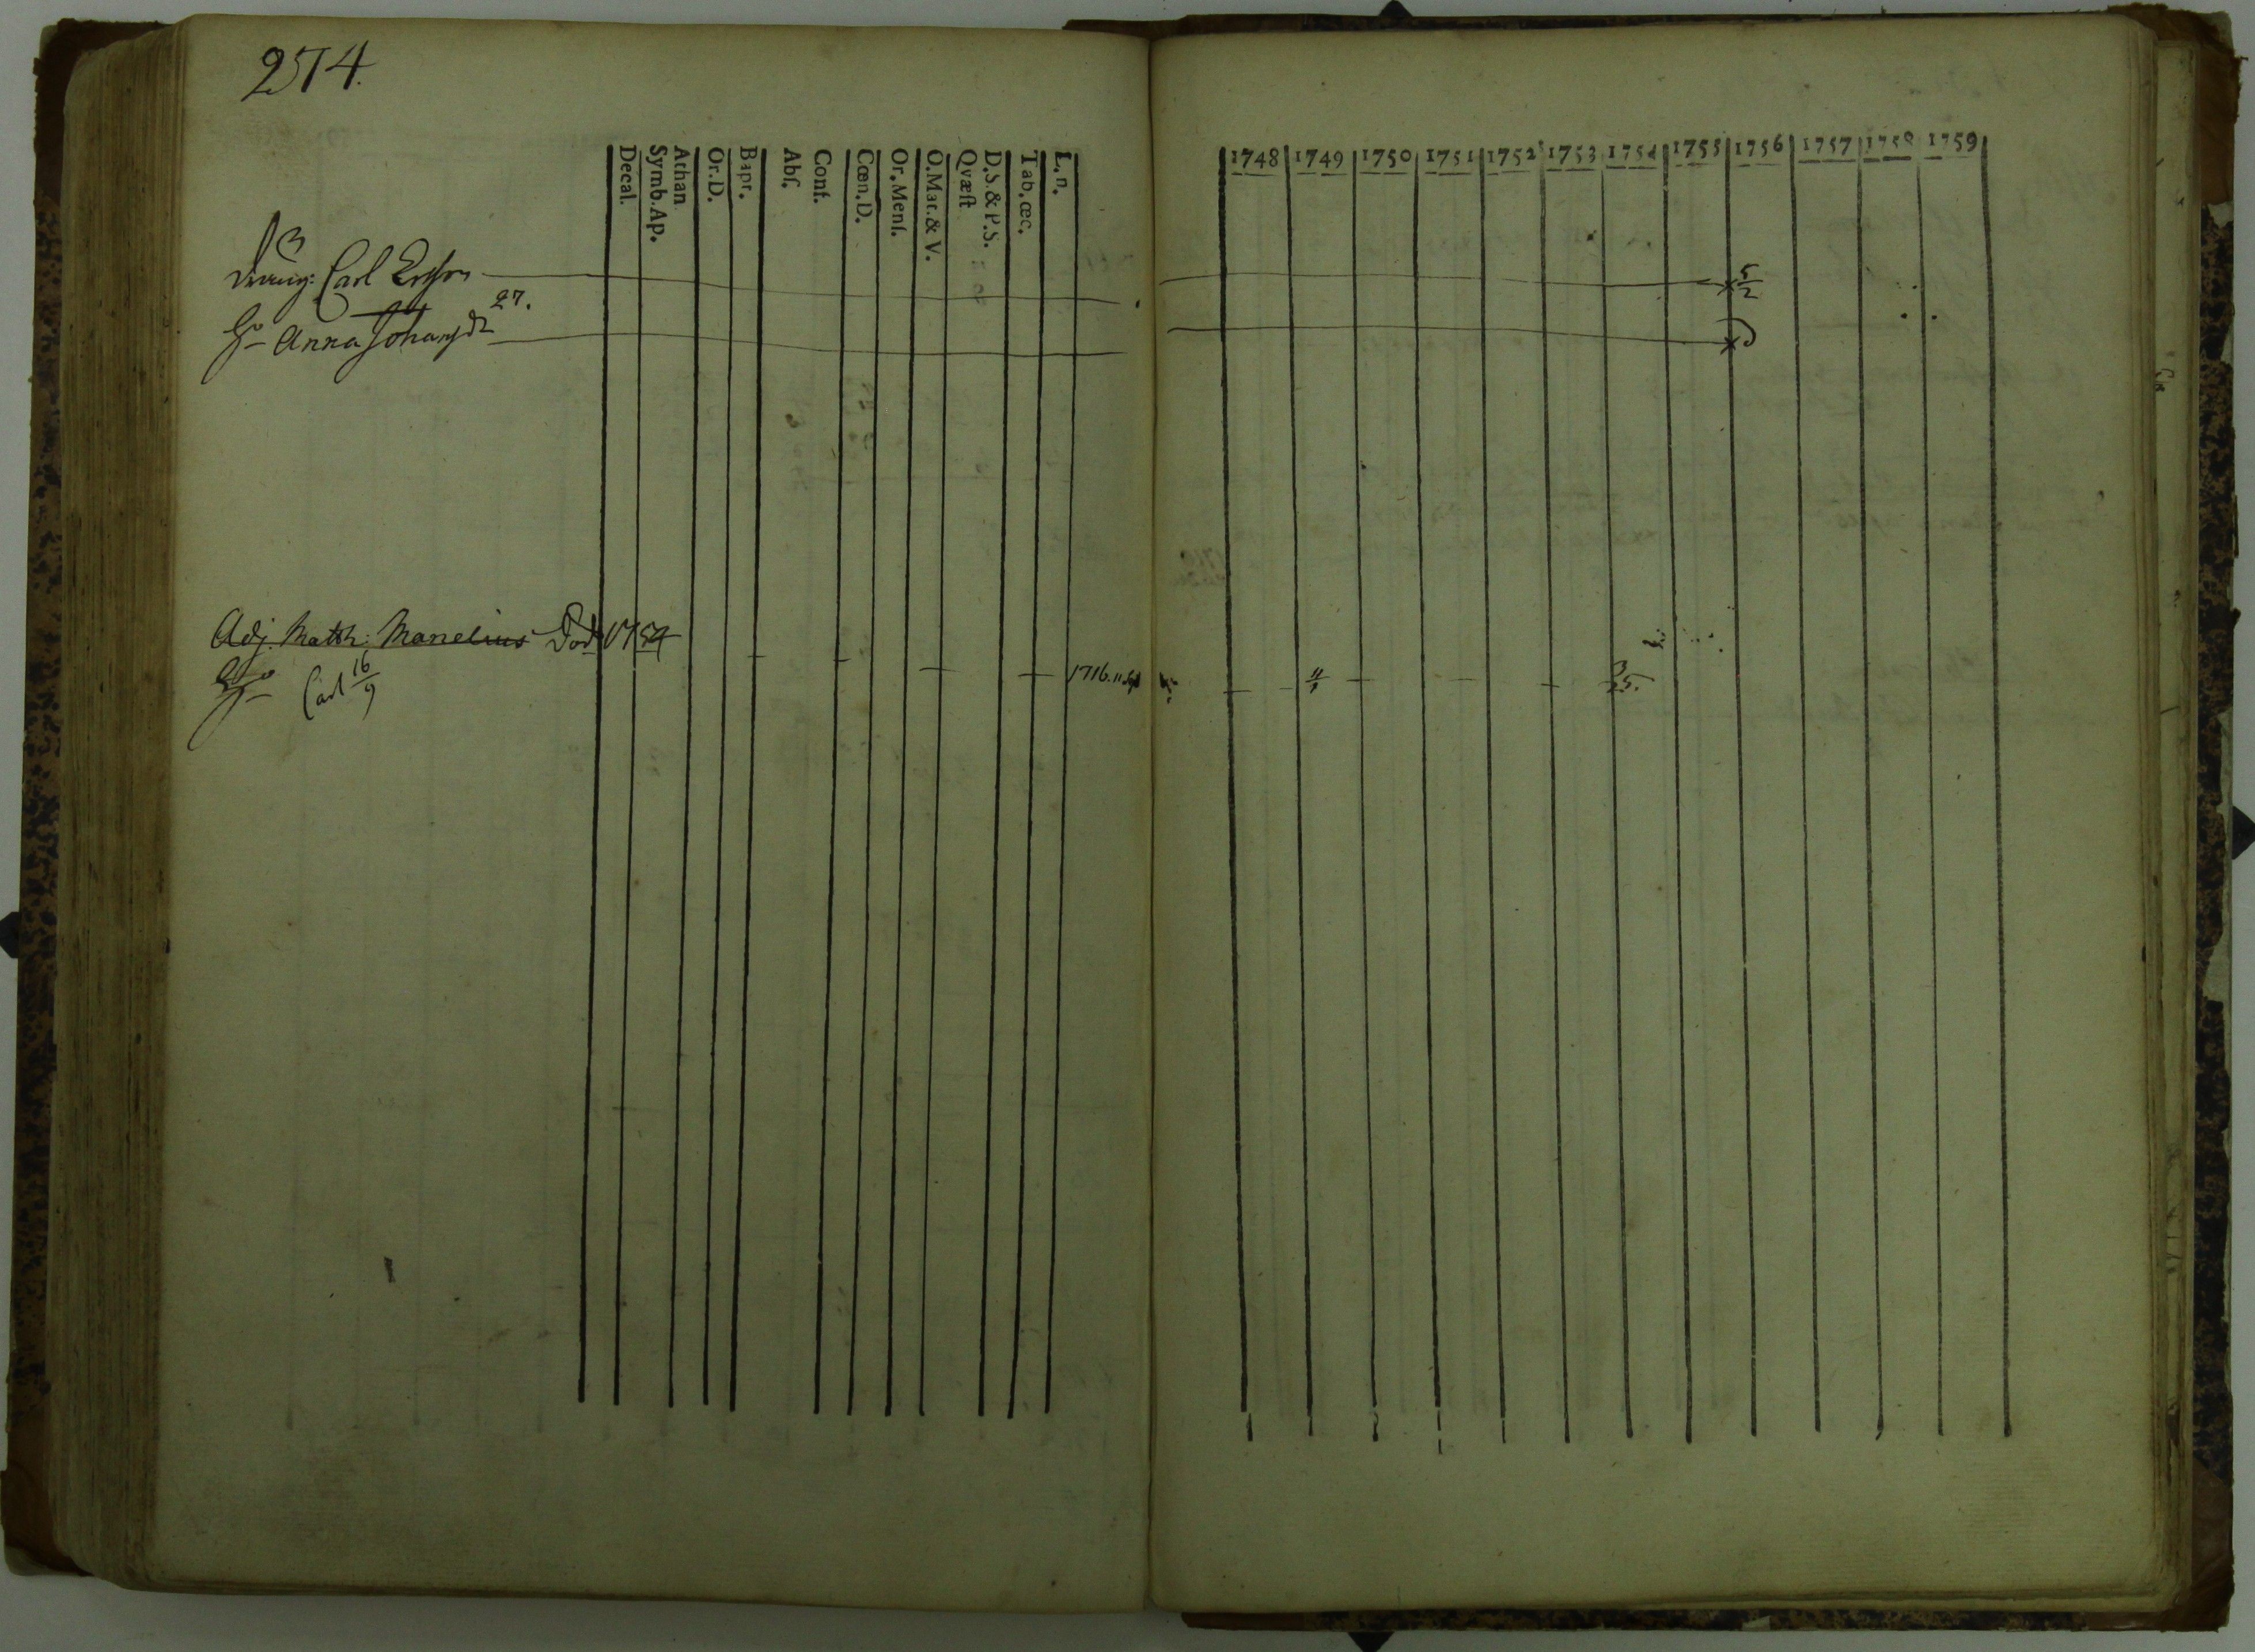 274.
Decal.
Symb. Ap.
Athan
Or. D.
Bapt.
Abſ.
Conf.
Cœn. D.
Or. Menſ.
O. Mat. & V.
Qvæſt
D. S. & P. S.
Tab. œc.
L. n.
1748 1749 1750 1751 1752 1753 1754 1755 1756 1757 1758 1759
Carl 5/2
27.
Anna Johansdr
Adj. Matth: Manelius Död 1754
Carl 16/9 1716. 11/1 3/25.